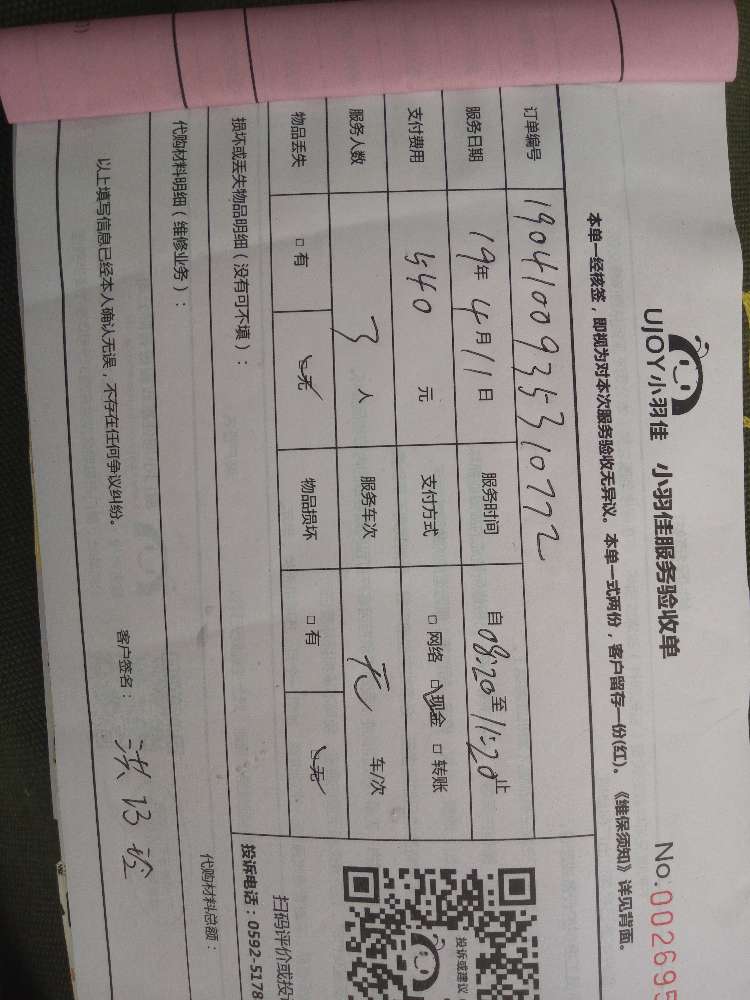 UJOY小羽佳 小羽佳服务验收单 No.002695
本单一经核签，即视为对本次服务验收无异议。本单一式两份，客户留存一份(红)。《维保须知》详见背面。
订单编号 190410093535310772
服务日期 19年4月11日 服务时间 自08:20至11:20止
支付费用 540元 支付方式 □网络 ☑现金 □转账
服务人数 3人 服务车次 无 车/次
物品丢失 □有 ☑无 物品损坏 □有 ☑无
投诉或建议
扫码评价或投
投诉电话：0592-5178
损坏或丢失物品明细（没有可不填）：
代购材料明细（维修业务）： 代购材料总额：
以上填写信息已经本人确认无误，不存在任何争议纠纷。 客户签名：洪